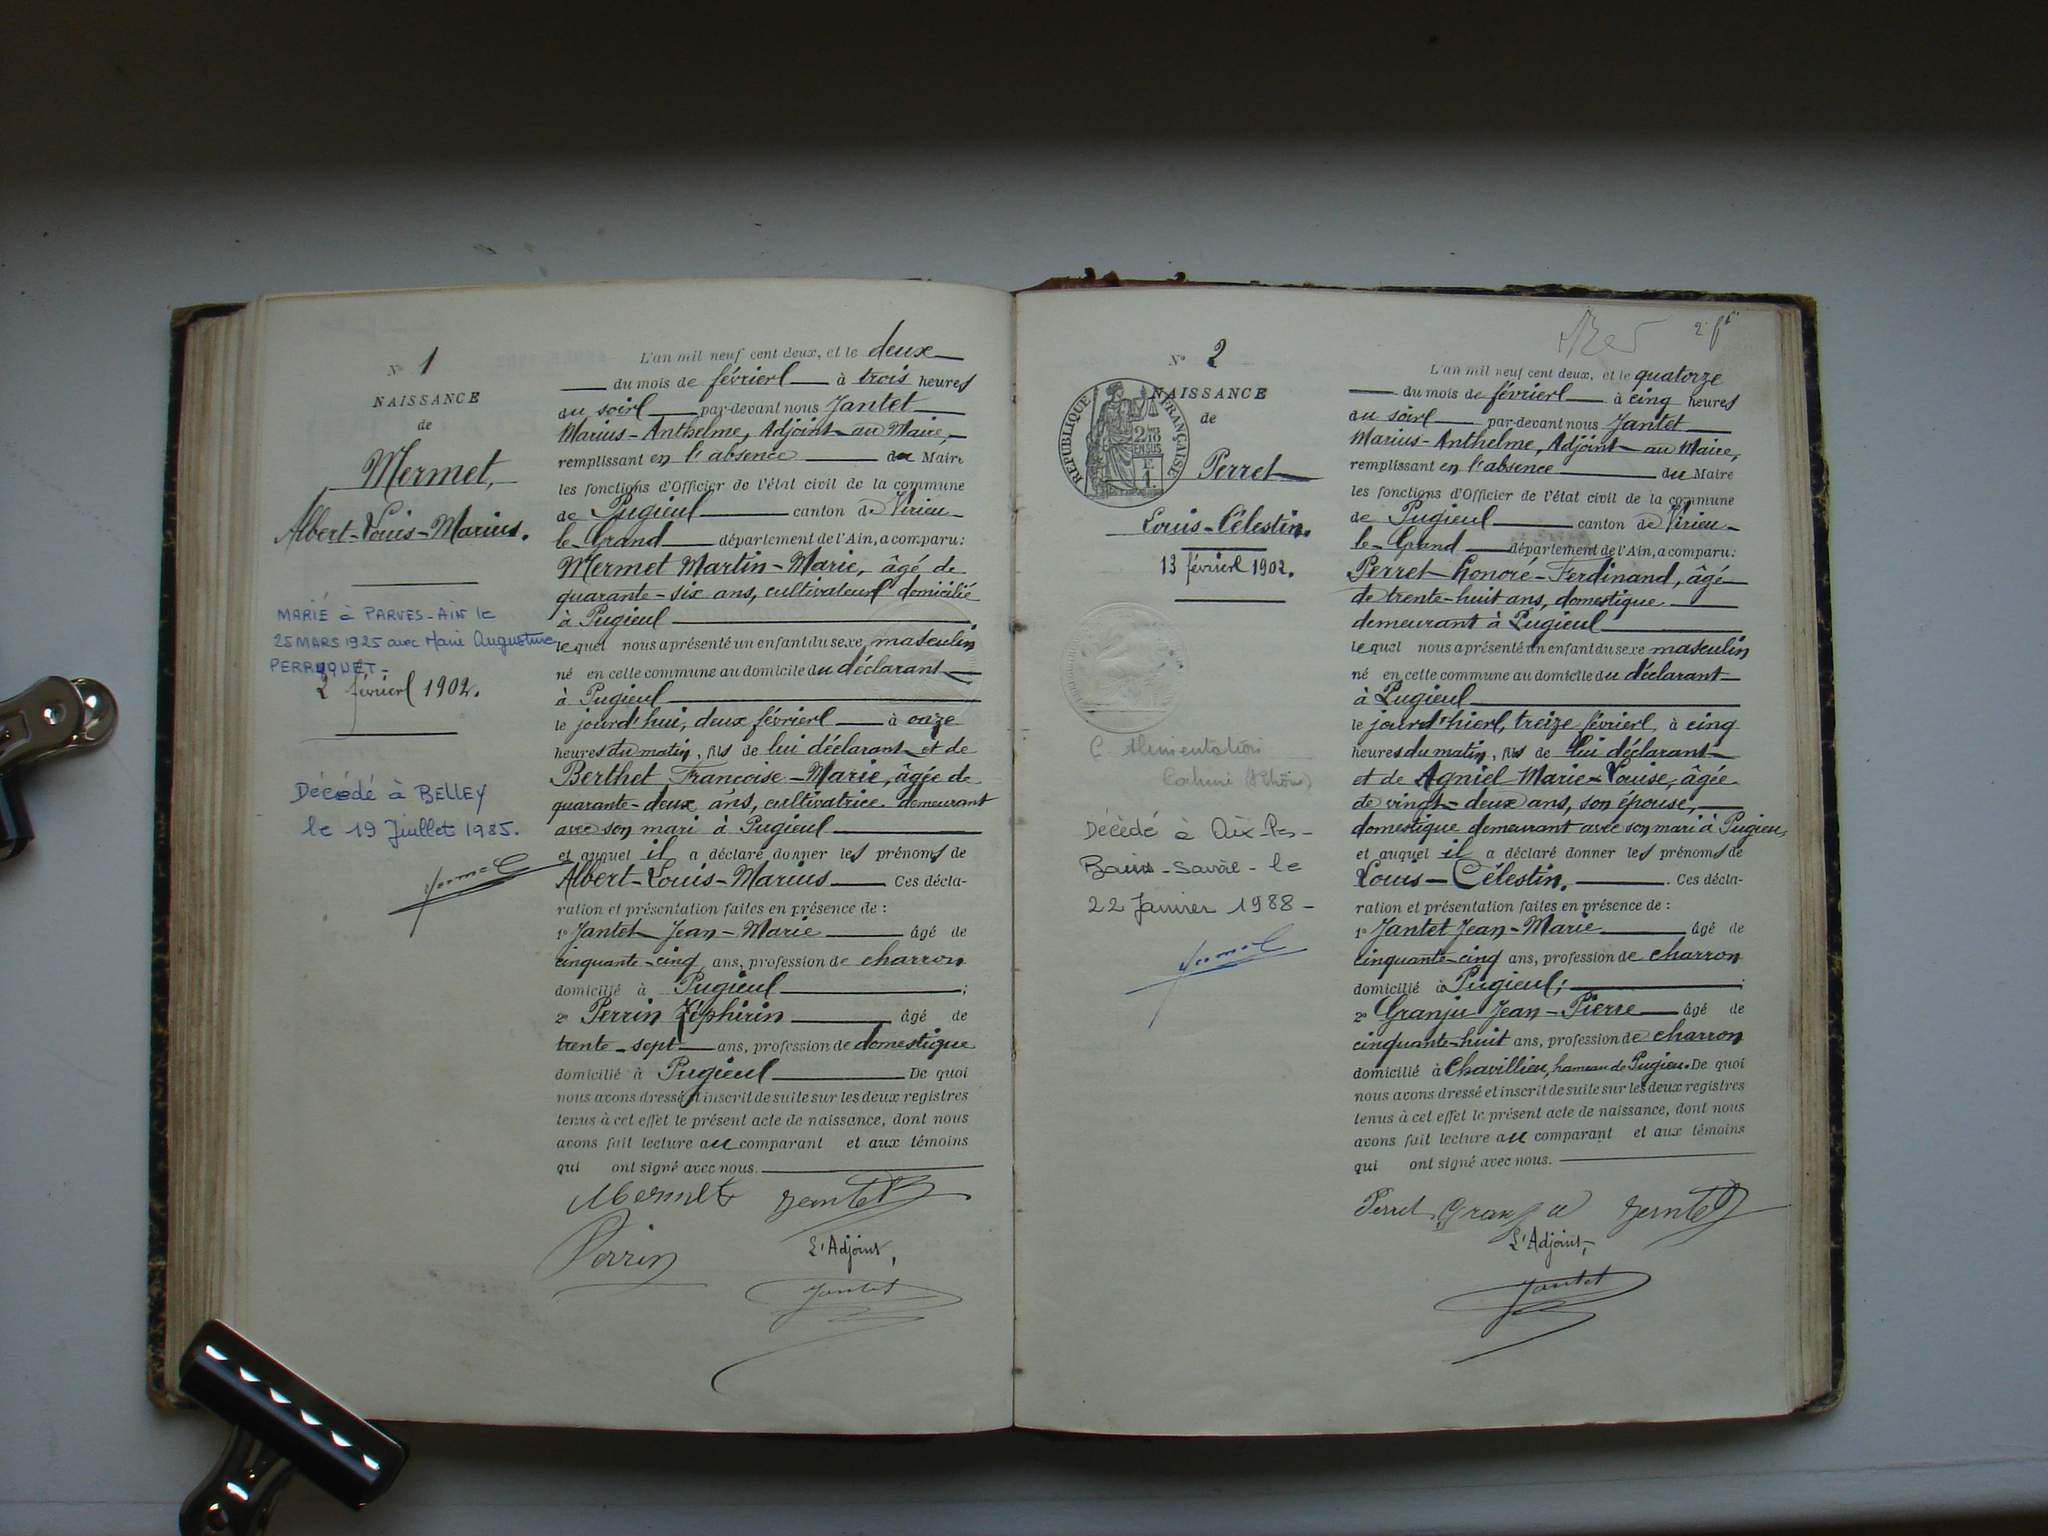 N° 1
NAISSANCE
de
Mermet,
Albert-Louis-Marius.
MARIÉ à PARVES-AIN le
25 MARS 1925 avec Marie Augustine
PERRUQUET-
2 février 1902.
Décédé à BELLEY
le 19 Juillet 1985.
L'an mil neuf cent deux, et le deux
du mois de février à trois heures
du soir par-devant nous Jantet
Marius-Anthelme, Adjoint au Maire,
remplissant en l'absence du Maire
les fonctions d'Officier de l'état civil de la commune
de Pugieu canton de Virieu-
le-Grand département de l'Ain, a comparu:
Mermet Martin-Marie, âgé de
quarante-six ans, cultivateur domicilié
à Pugieu
lequel nous a présenté un enfant du sexe masculin
né en cette commune au domicile du déclarant
à Pugieu
le jourd'hui, deux février à onze
heures du matin, fils de lui déclarant et de
Berthet Françoise-Marie, âgée de
quarante-deux ans, cultivatrice demeurant
avec son mari à Pugieu
et auquel il a déclaré donner les prénoms de
Albert-Louis-Marius Ces décla-
ration et présentation faites en présence de:
1° Jantet Jean-Marie âgé de
cinquante-cinq ans, profession de charron
domicilié à Pugieu;
2° Perrin Zéphirin âgé de
trente-sept ans, profession de domestique
domicilié à Pugieu De quoi
nous avons dressé et inscrit de suite sur les deux registres
tenus à cet effet le présent acte de naissance, dont nous
avons fait lecture au comparant et aux témoins
qui ont signé avec nous.
Mermet Jantet
Perrin L'Adjoint,
Jantet
2
N° 2
NAISSANCE
de
RÉPUBLIQUE FRANÇAISE
2/10
EN SUS
1.
Perret
Louis-Célestin.
13 février 1902.
Alimentation
Décédé à Aix-les-
Bains-Savoie-le
22 Janvier 1988-
L'an mil neuf cent deux, et le quatorze
du mois de février à cinq heures
du soir par-devant nous Jantet
Marius-Anthelme, Adjoint au Maire,
remplissant en l'absence du Maire
les fonctions d'Officier de l'état civil de la commune
de Pugieu canton de Virieu-
le-Grand département de l'Ain, a comparu:
Perret Honoré-Ferdinand, âgé
de trente-huit ans, domestique
demeurant à Pugieu
lequel nous a présenté un enfant du sexe masculin
né en cette commune au domicile du déclarant
à Pugieu
le jourd'hier, treize février à cinq
heures du matin, fils de lui déclarant
et de Agniel Marie-Louise, âgée
de vingt-deux ans, son épouse,
domestique demeurant avec son mari à Pugieu,
et auquel il a déclaré donner les prénoms de
Louis-Célestin. Ces décla-
ration et présentation faites en présence de:
1° Jantet Jean-Marie âgé de
cinquante-cinq ans, profession de charron
domicilié à Pugieu;
2° Granju Jean-Pierre âgé de
cinquante-huit ans, profession de charron
domicilié à Chavillieu, hameau de Pugieu. De quoi
nous avons dressé et inscrit de suite sur les deux registres
tenus à cet effet le présent acte de naissance, dont nous
avons fait lecture au comparant et aux témoins
qui ont signé avec nous.
Perret Granju Jantet
L'Adjoint,
Jantet